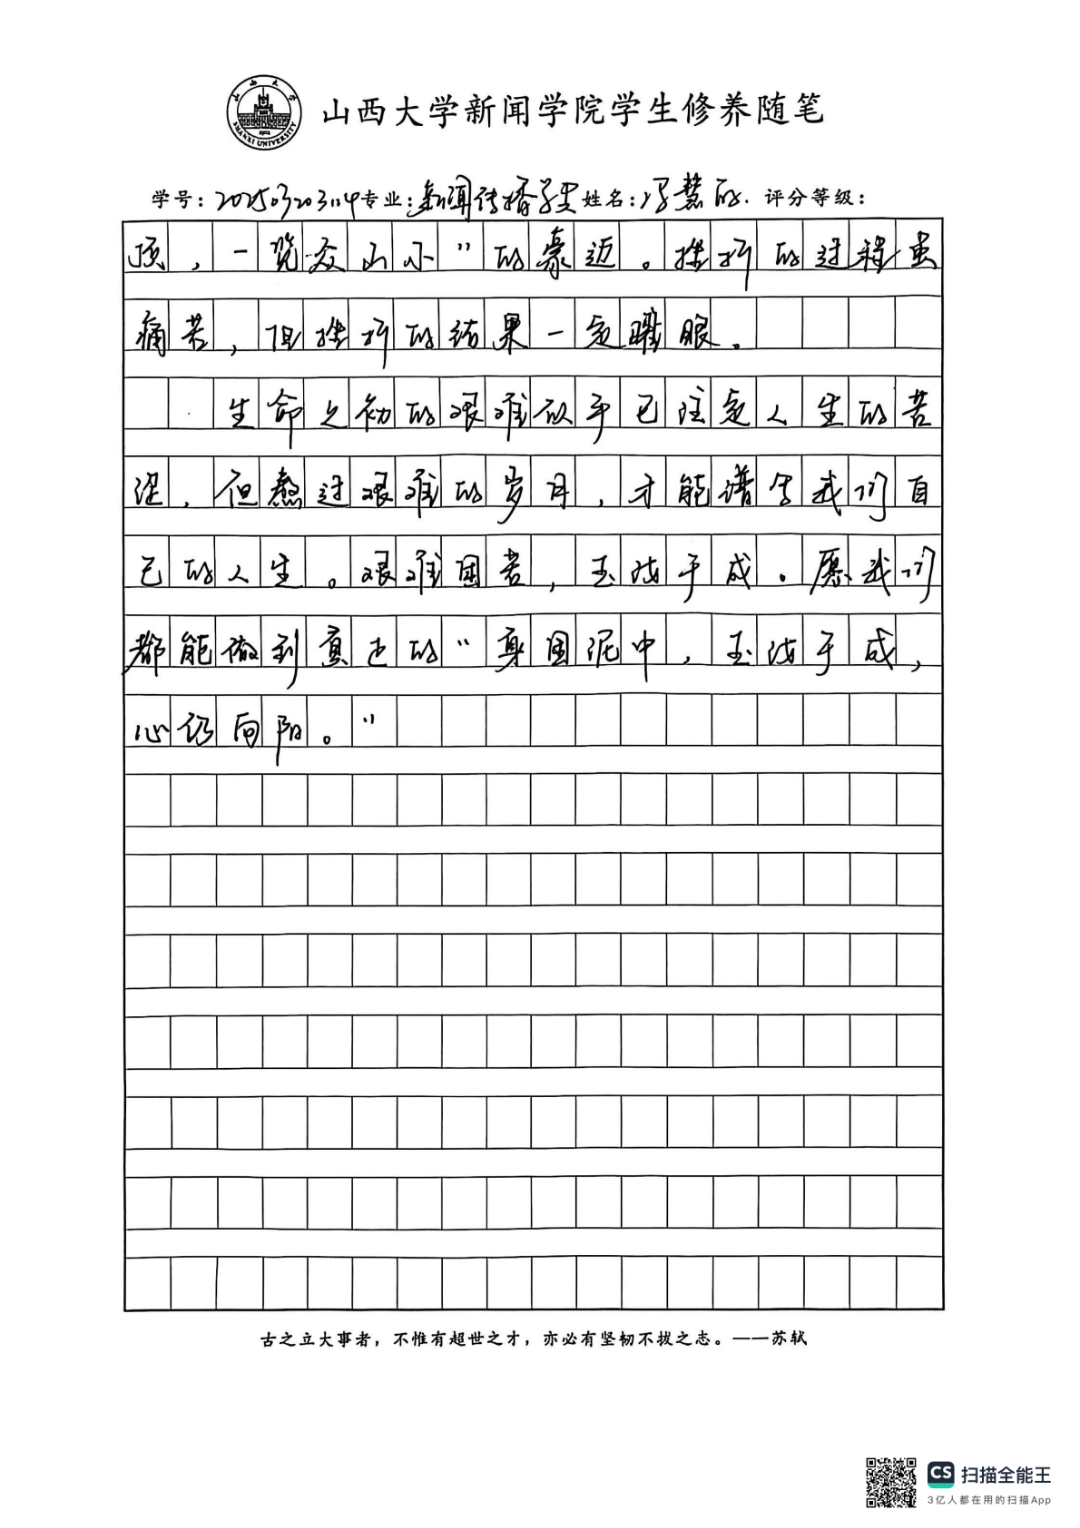 山西大学
SHANXI UNIVERSITY
1902
山西大学新闻学院学生修养随笔
学号: 专业: 新闻传播学类 姓名: 冯慧 评分等级:
顶，一览众山小”的豪迈。挫折的过程虽
痛苦，但挫折的结果一定耀眼。
生命之初的艰难似乎已注定人生的苦
涩，但熬过艰难的岁月，才能谱写我们自
己的人生。艰难困苦，玉汝于成。愿我们
都能做到真正的“身困泥中，玉汝于成，
心仍向阳。”
古之立大事者，不惟有超世之才，亦必有坚韧不拔之志。——苏轼
CS 扫描全能王
3亿人都在用的扫描App